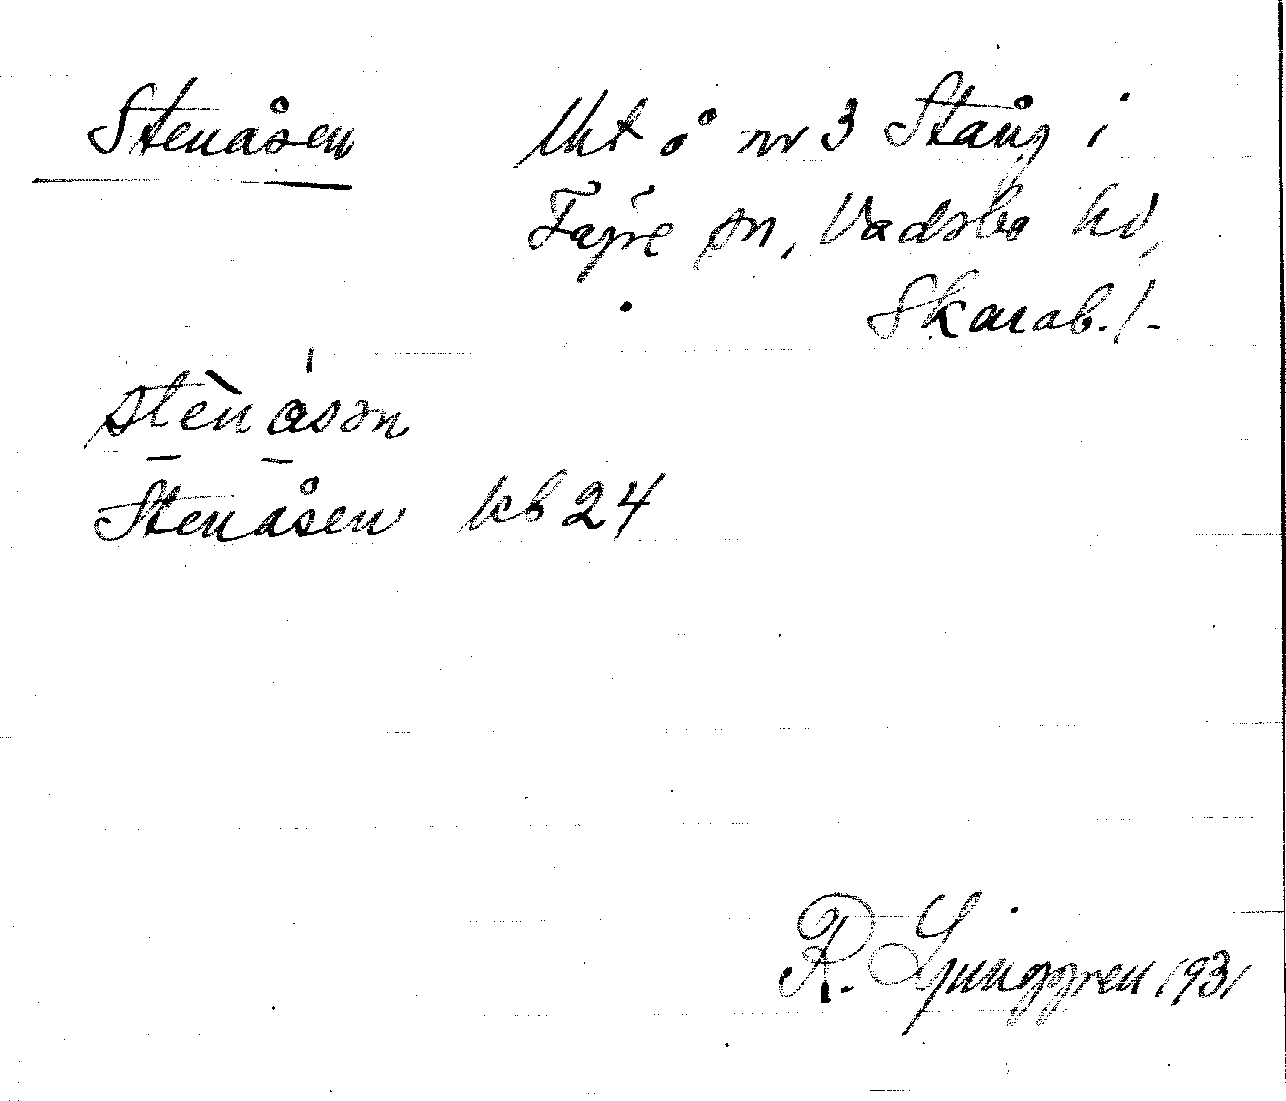 Stenåsen Lht å nr 3 Stång i
Fägre sn, Vadsbo hd,
Skarab. l.
stènásən
Stenåsen kb 24
R. Ljunggren 1931